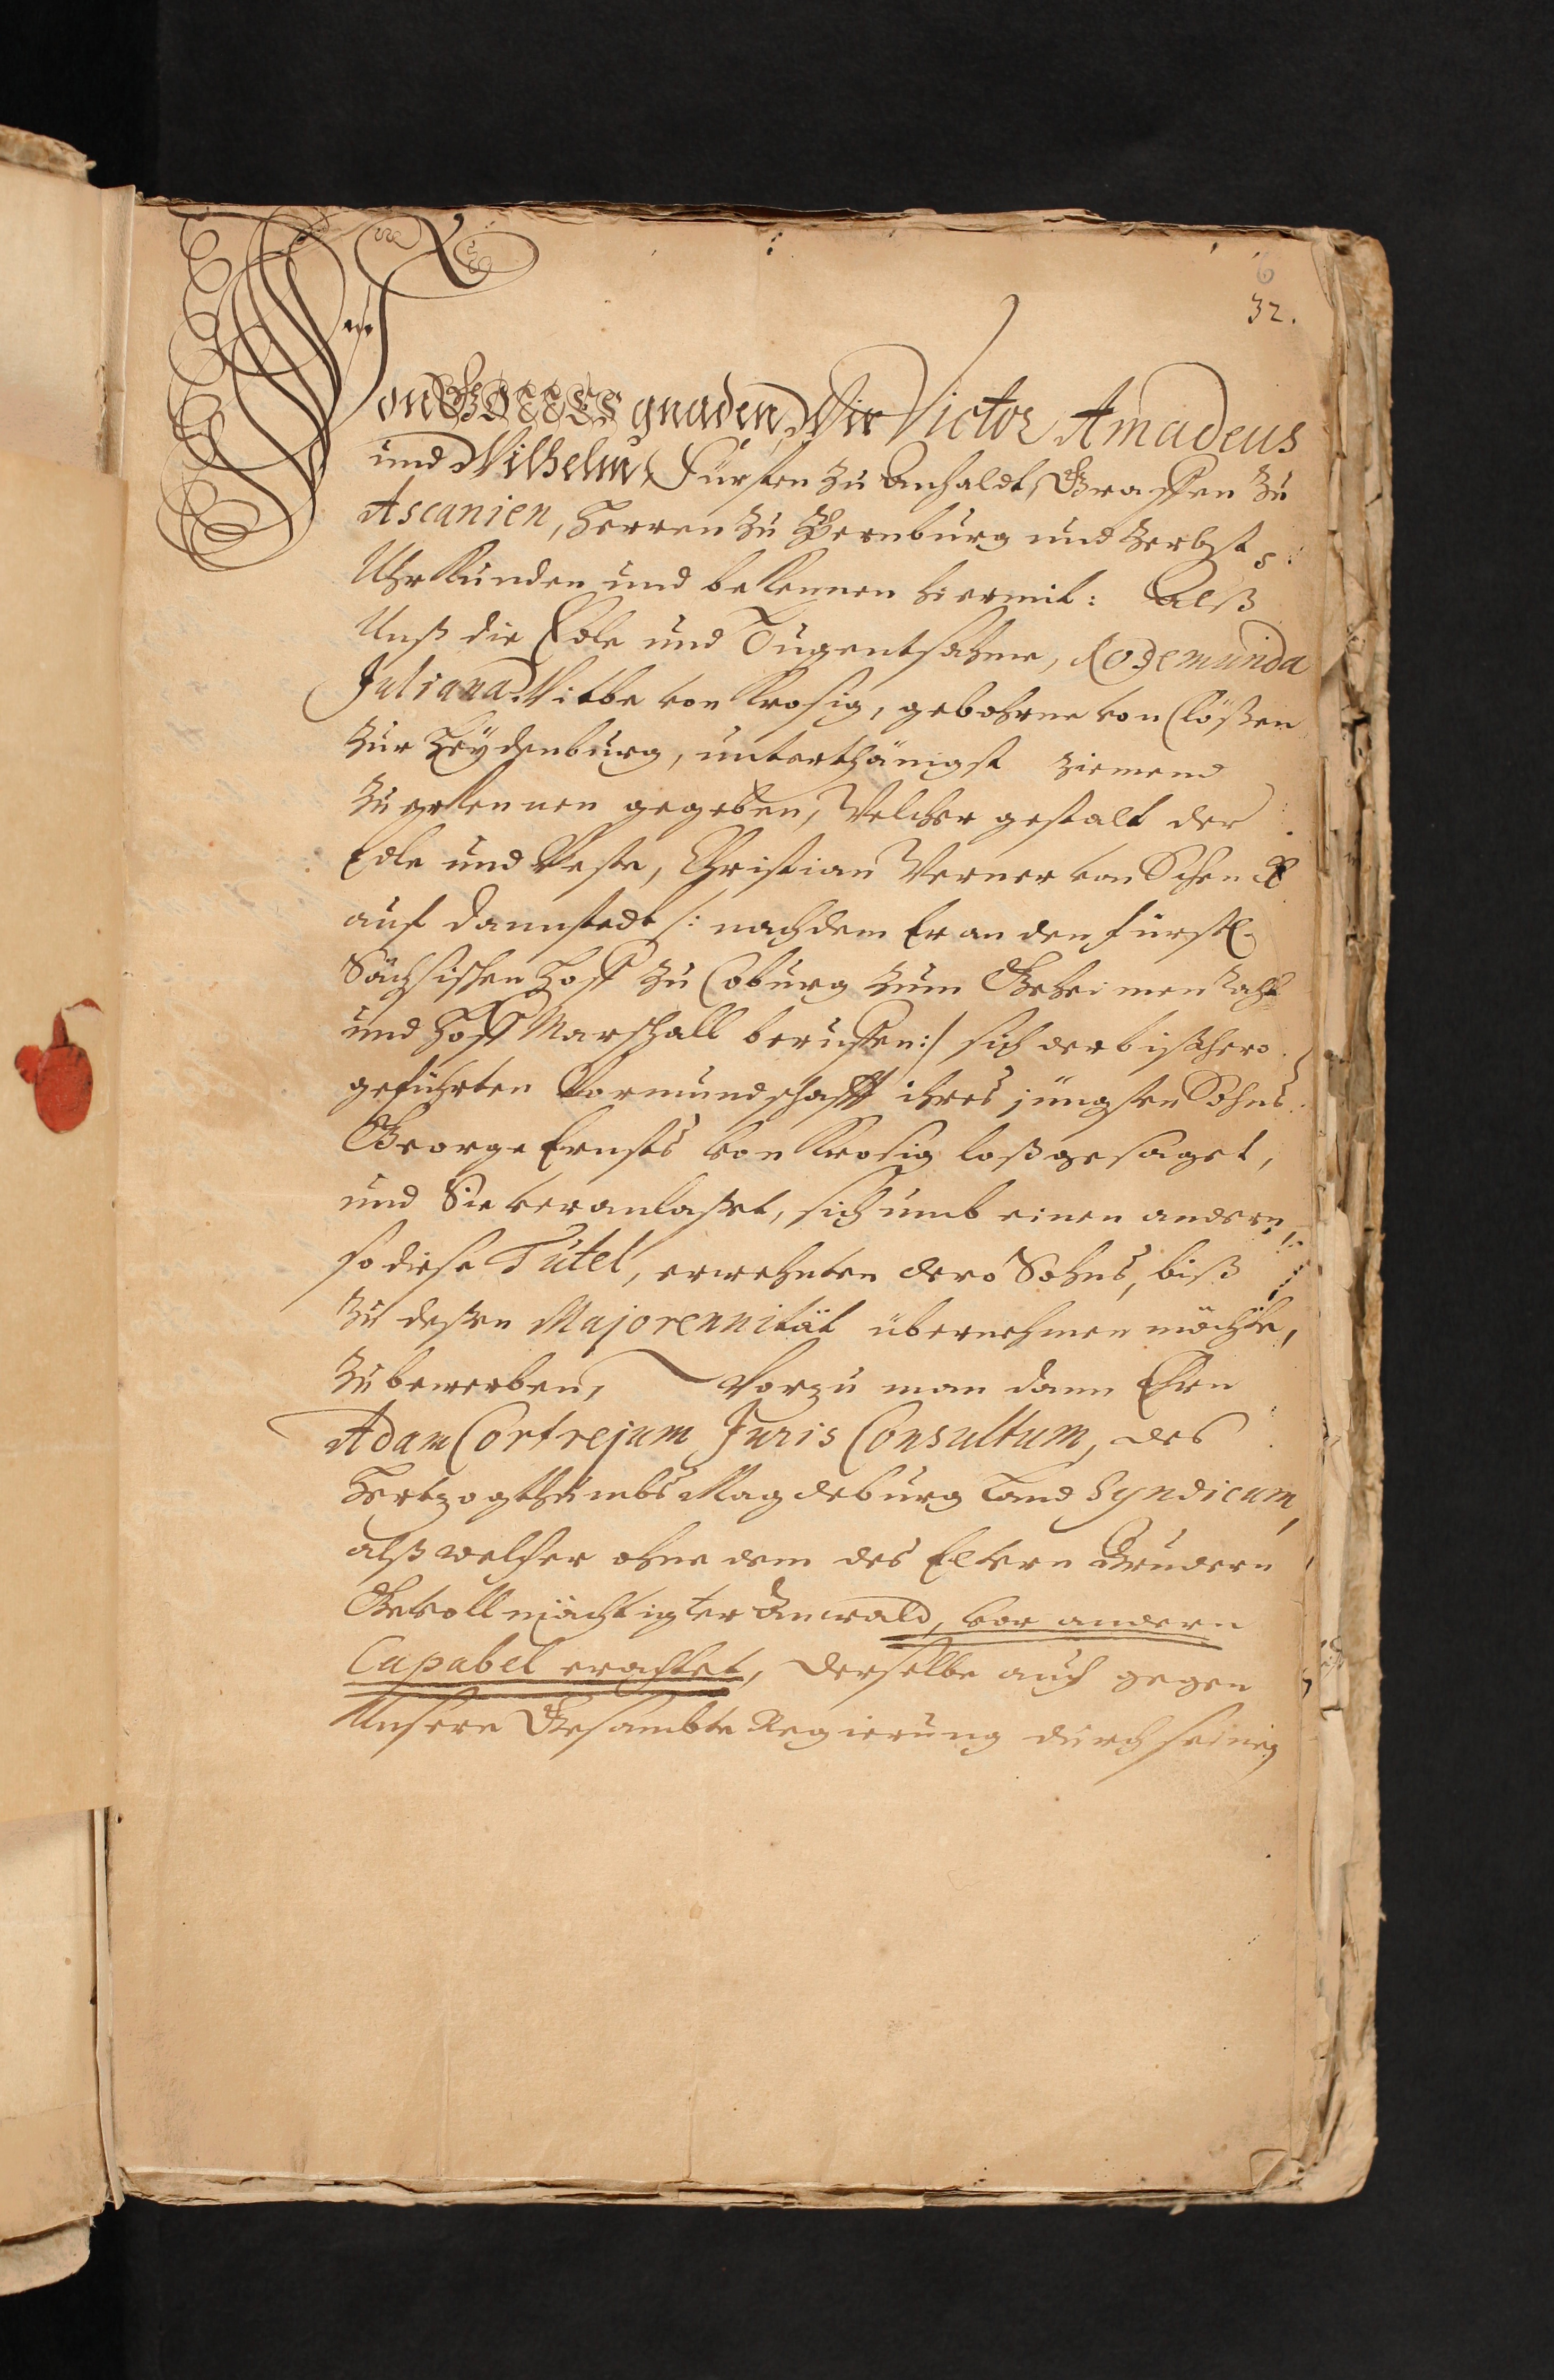 6
32.
Von GOTTES gnaden, Wir Victor Amadeus
und Wilhelm, Fürsten zu Anhaldt, Graffen zu
Ascanien, Herren zu Bernburg und Zerbst
Uhrkunden und bekennen hiermit: Alß
Unß die Edle und Tugentsahme, Rosemunda
Juliana Witbe von Krosig, gebohrne von Lößen
zur Heydenburg, unterthänigst ziemend
zu erkennen gegeben, Welcher gestalt der
Edle und Veste, Christian Werner von Schenck
auf Dannstedt /: nachdem Er an den fürstl.
Sächsischen Hoff zu Coburg zum Geheimen Raht
und Hoff Marschall beruffen :/ sich der bißhero
geführten Vormundschafft ihres jüngsten Sohns
George Ernsts von Krosig loßgesaget,
und Sie veranlaßet, sich umb einen andern,
so diese Tutel, erwehnten dero Sohns, biß
zu deßen Majorennität übernehmen möchte,
zu bewerben, Worzu man dann Ehrn
Adam Cortrejum Juris Consultum, des
Hertzogthumbs Magdeburg Land Syndicum,
alß welcher ohne dem des Eltern Brudern
Gevollmächtigter Anwald, vor andern
Capabel erachtet, derselbe auch gegen
Unsere Gesambte Regierung durch seinen